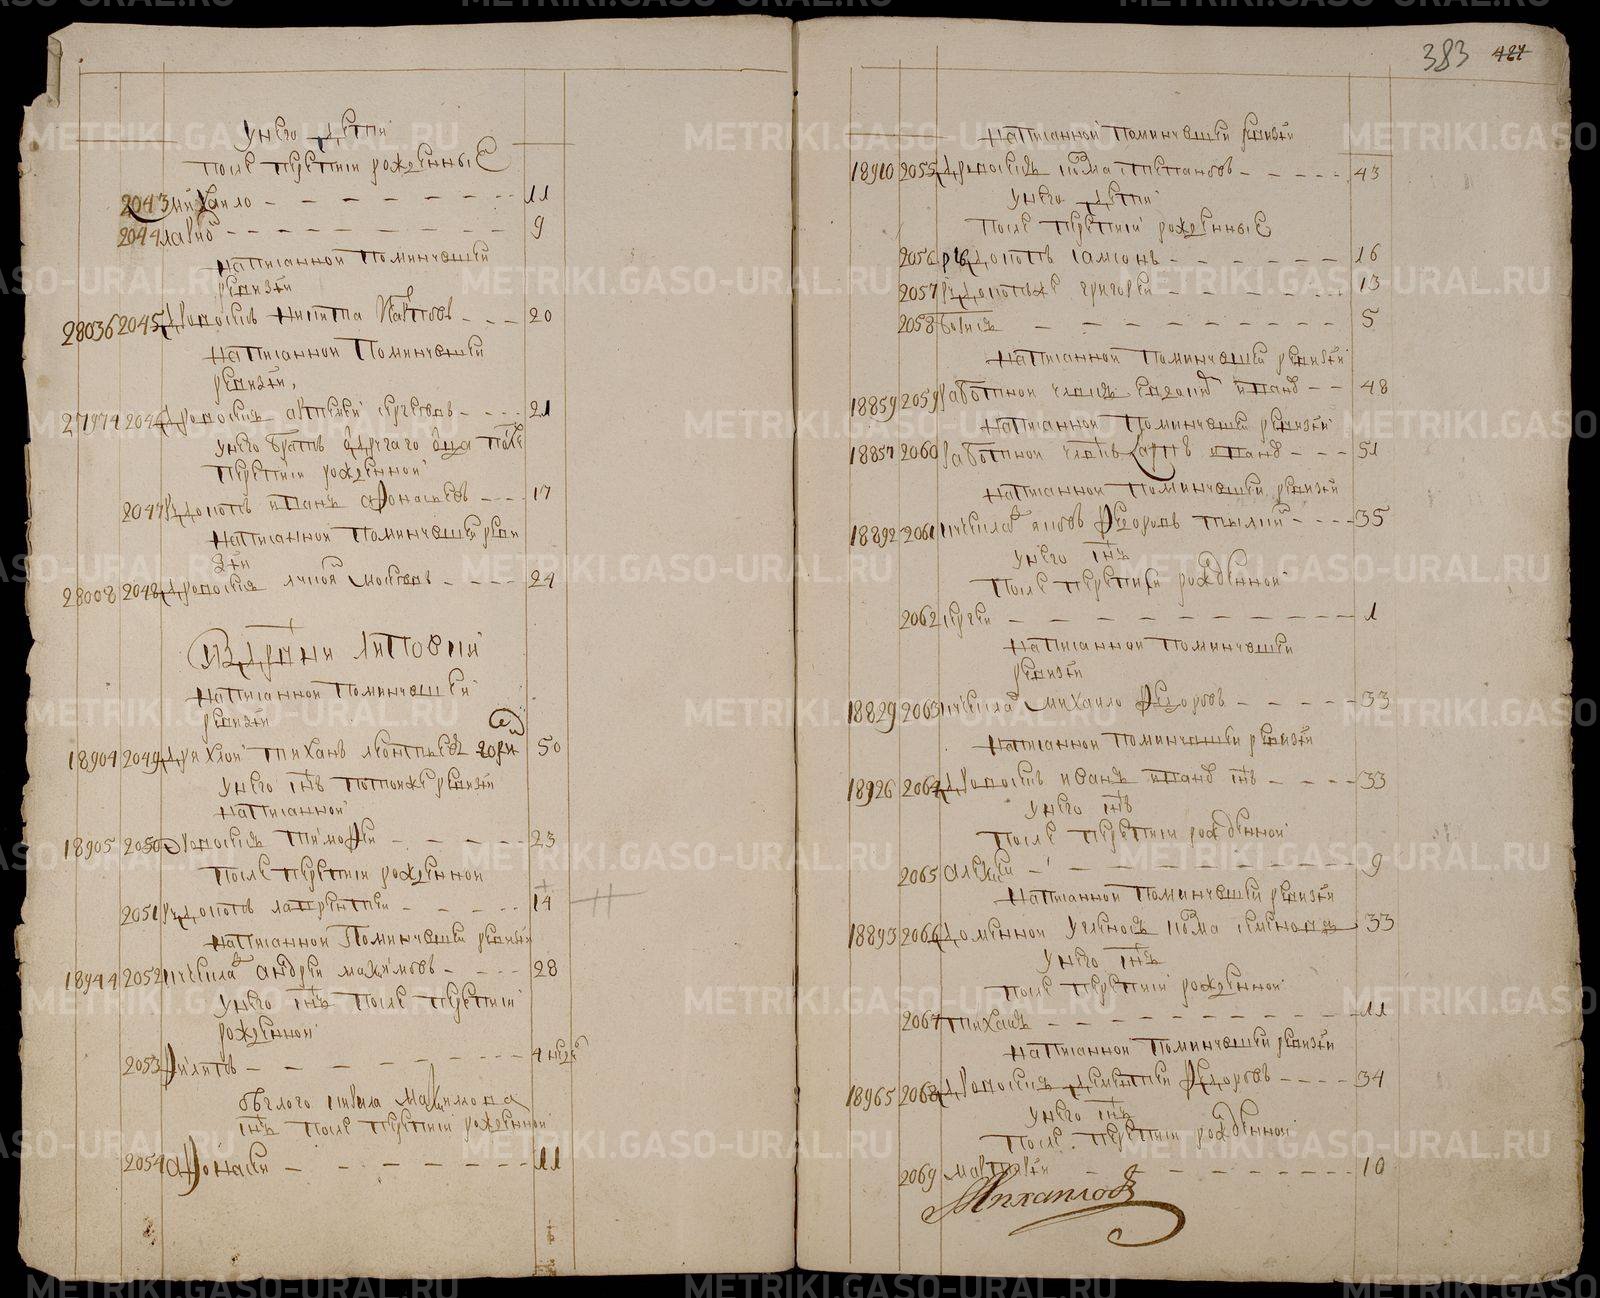 383 487
у него дети
после переписи рожденные
2043 михаило 11
2044 9
написанной поминувшей
ревизеи
28036 2045 дровосекъ никита 20
написанной поминувшей
ревизеи,
27974 2046 дровосекъ артемей 21
у него братъ
переписи рожденной
2047 рудокопъ иванъ афонасьевъ 17
написанной поминувшей реви
зеи
28008 2048 дровосекъ 24
деревни липовки
написанной поминувшей
ревизеи
18904 2049 дряхлой тиханъ леонтьевъ 50
у него снъ потой же ревизеи
написанной
18905 2050 дровосекъ тимофеи 23
после переписи рожденной
2051 рудокопъ лаврентеи 14
написанной поминувшей ревизеи
18944 2052 андреи максимовъ 28
у него снъ после переписи
рожденной
2053 филипъ 4 недел
беглого максимова
снъ после переписи рожденной
2054 афонасеи 11
написанной поминувшей ревизеи
18910 2055 дровосекъ козма степановъ 43
у него дети
после переписи рожденные
2056 рудокопъ самсонъ 16
2057 рудокопъ же григореи 13
2058 борисъ 5
написанной поминувшей ревизеи
18859 2059 работной человекъ ивановъ 48
написанной поминувшей ревизеи
18857 2060 работной человекъ карпъ ивановъ 51
написанной поминувшей ревизеи
18892 2061 яковъ федоровъ 35
у него снъ
после переписи рожденной
2062 сергеи 1
написанной поминувшей
ревизеи
18829 2063 михаило федоровъ 33
написанной поминувшей ревизеи
18926 2064 дровосекъ иванъ ивановъ снъ 33
у него снъ
после переписи рожденной
2065 алексеи 9
написанной поминувшей ревизеи
18893 2066 доменной ученикъ козма семеновъ 33
у него снъ
после переписи рожденной
2067 тиханъ 11
написанной поминувшей ревизеи
18965 2068 дровосекъ дементеи федоровъ 34
у него снъ
после переписи рожденной
2069 10
Михаилов
METRIKI.GASO-URAL.RU